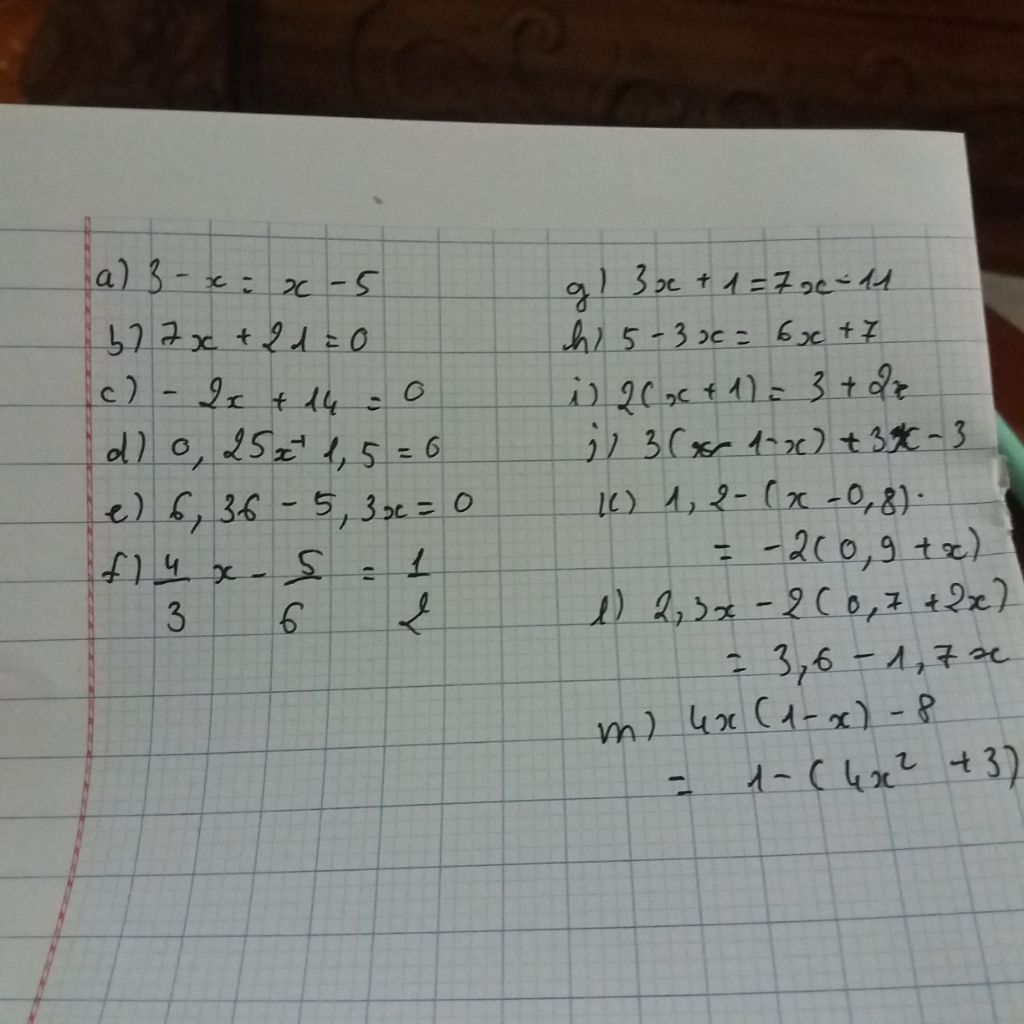 a) 3 - x = x - 5
b) 7x + 21 = 0
c) - 2x + 14 = 0
d) 0, 25x 1, 5 = 6
e) 6, 36 - 5, 3x = 0
f) 4/3 x - 5/6 = 1/2
g) 3x + 1 = 7x - 11
h) 5 - 3x = 6x + 7
i) 2(x + 1) = 3 + 2x
j) 3( 1-x) + 3x - 3
k) 1, 2 - (x - 0,8).
= -2(0,9 + x)
l) 2,3x - 2(0,7 + 2x)
= 3,6 - 1,7x
m) 4x(1-x) - 8
= 1 - (4x² + 3)